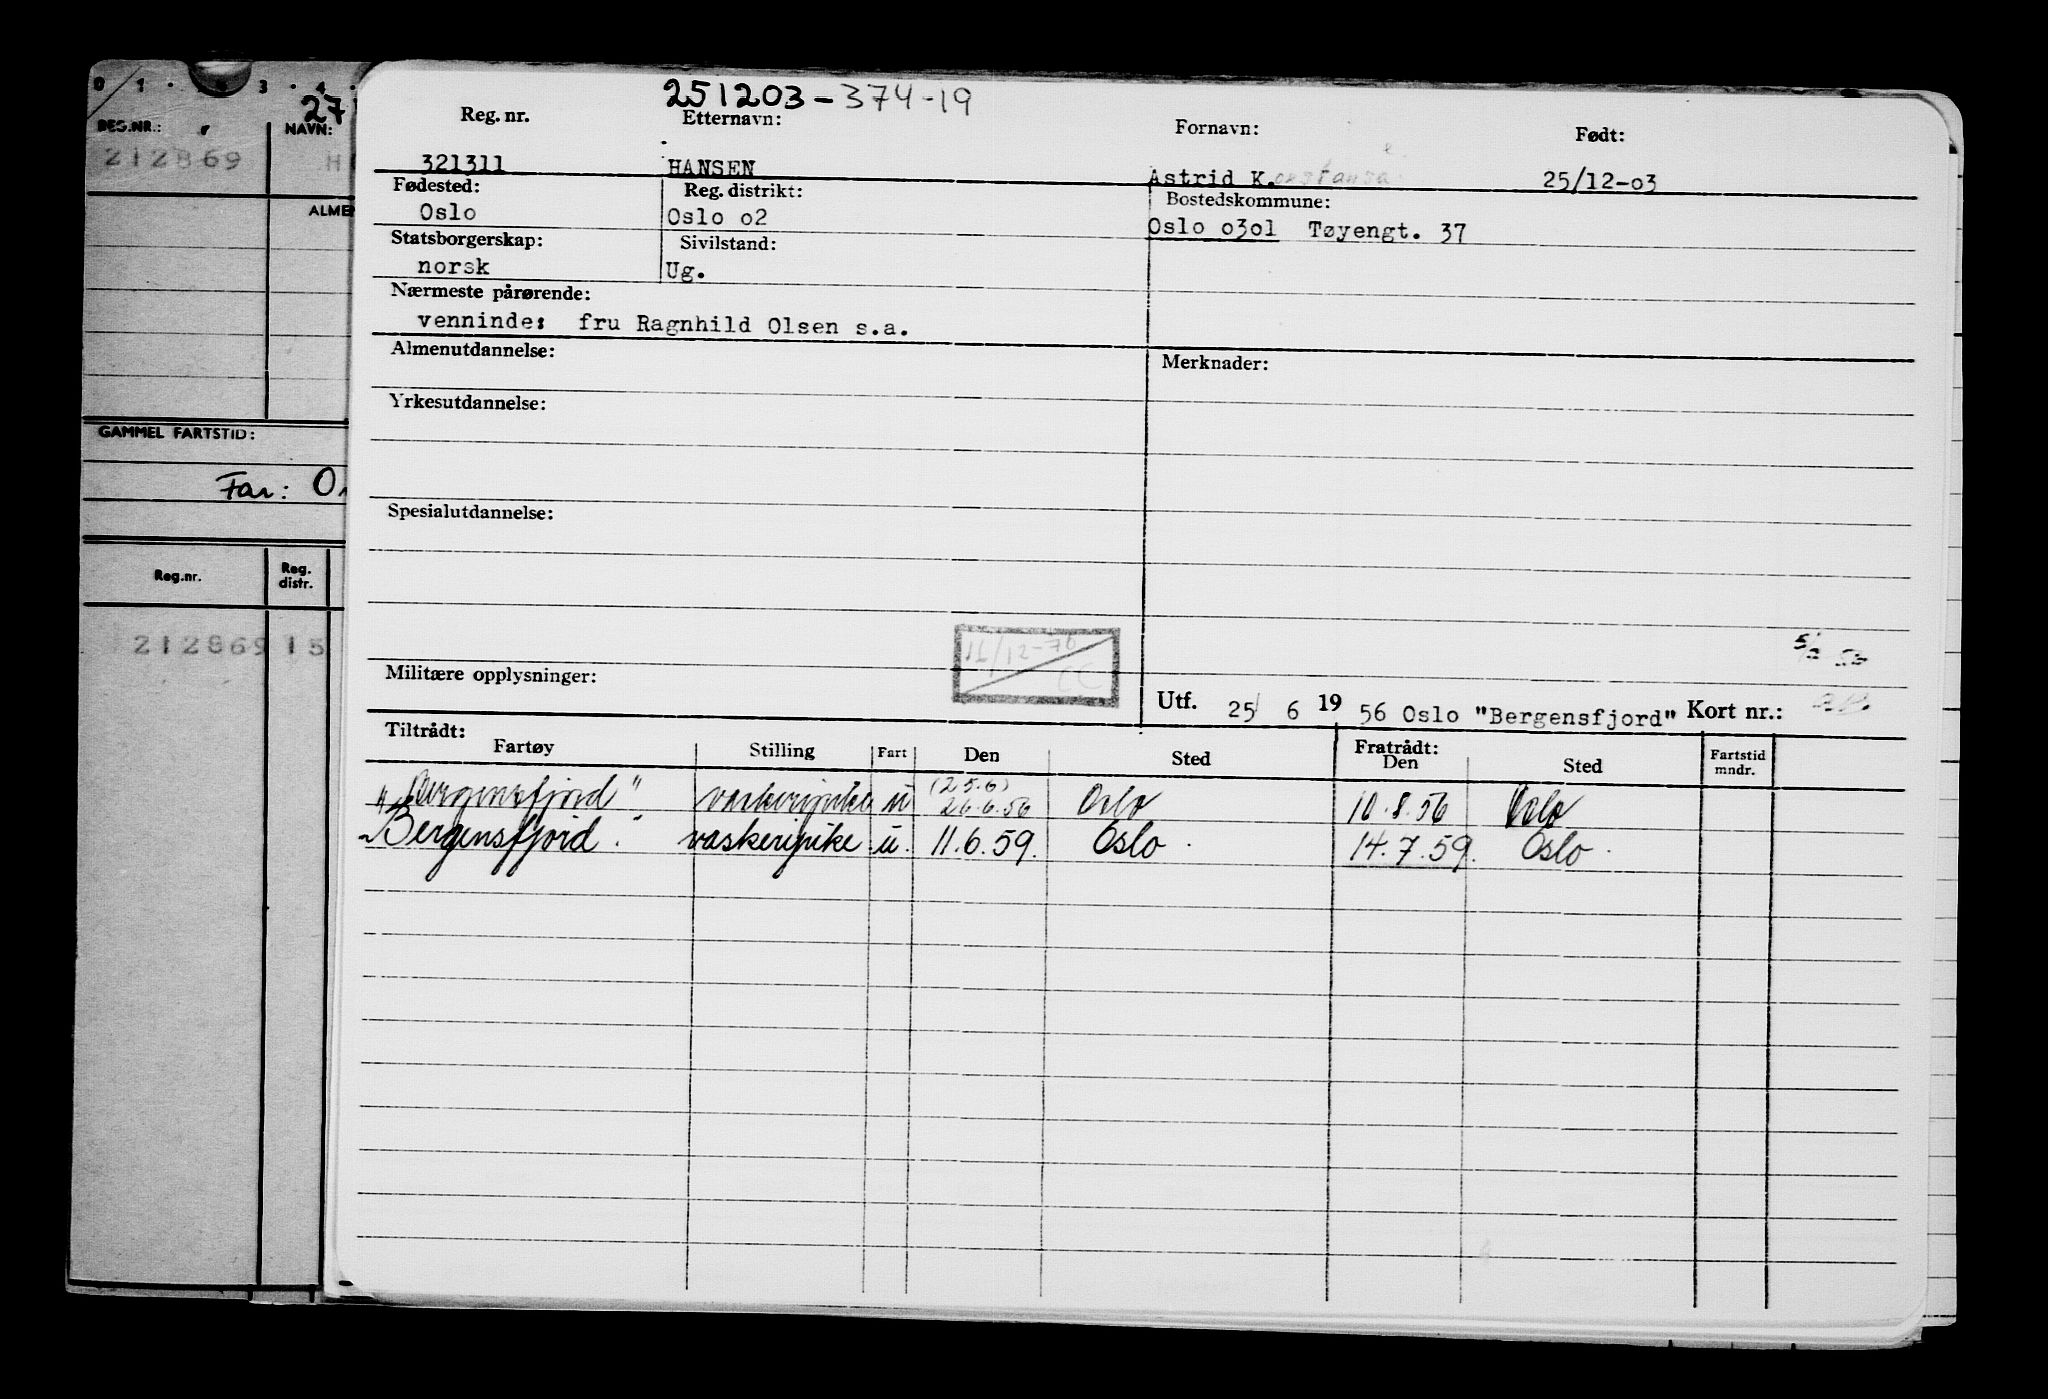 0 1 3 4
27
REG.NR.:
NAVN:
212869
H
ALME
GAMMEL FARTSTID:
Far:
Reg.nr.
Reg. distr.
212869 15
251203-374-19
Reg. nr. Etternavn: Fornavn: Født:
321311 HANSEN Astrid K. 25/12-03
Fødested: Reg. distrikt: Bostedskommune:
Oslo Oslo o2 Oslo o3o1 Tøyengt. 37
Statsborgerskap: Sivilstand:
norsk Ug.
Nærmeste pårørende:
venninde: fru Ragnhild Olsen s.a.
Almenutdannelse: Merknader:
Yrkesutdannelse:
Spesialutdannelse:
11/12-76
CC
Militære opplysninger:
Utf. 25 6 19 56 Oslo "Bergensfjord" Kort nr.:
Tiltrådt: Fratrådt:
Fartøy Stilling Fart Den Sted Den Sted Fartstid mndr.
(25.6)
"Bergensfjord" vaskeripike u 26.6.56 Oslo 10.8.56 Oslo
"Bergensfjord." vaskeripike u. 11.6.59. Oslo. 14.7.59. Oslo.